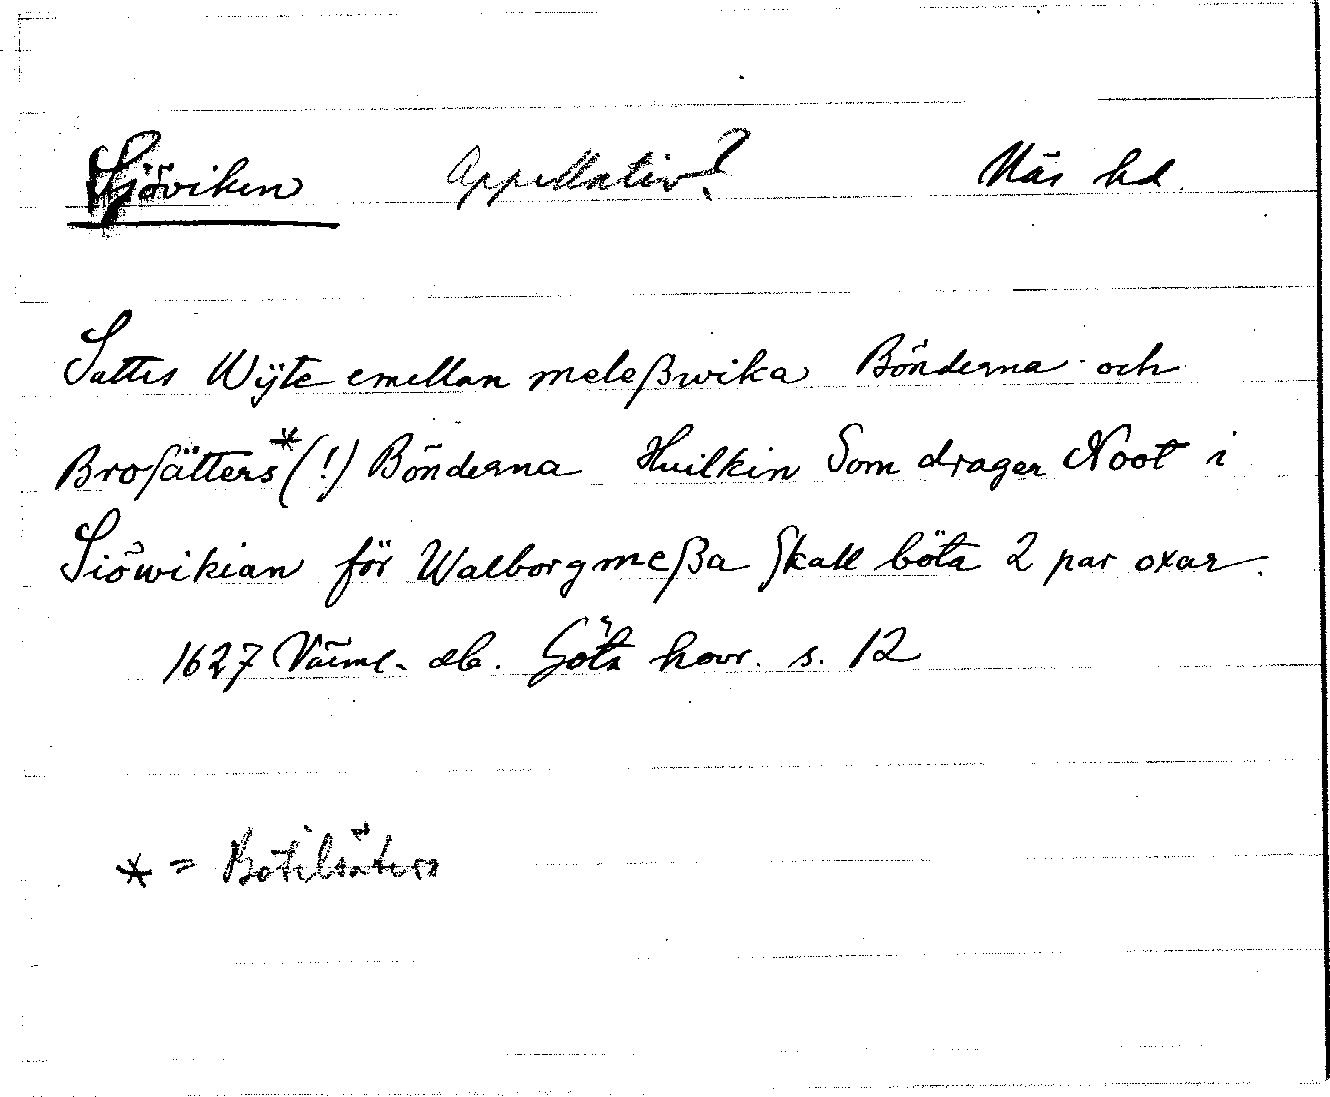 Sjöviken Appellativ? Näs hd.
Sattes Wÿte emellan meleßwika Bönderna och
Brosätters* (!) Bönderna Huilkin Som drager Noot i
Siöwikian för Walborgmeßa Skall böta 2 par oxar.
1627 Värml. db. Göta hovr. s. 12
* = Botilsäters